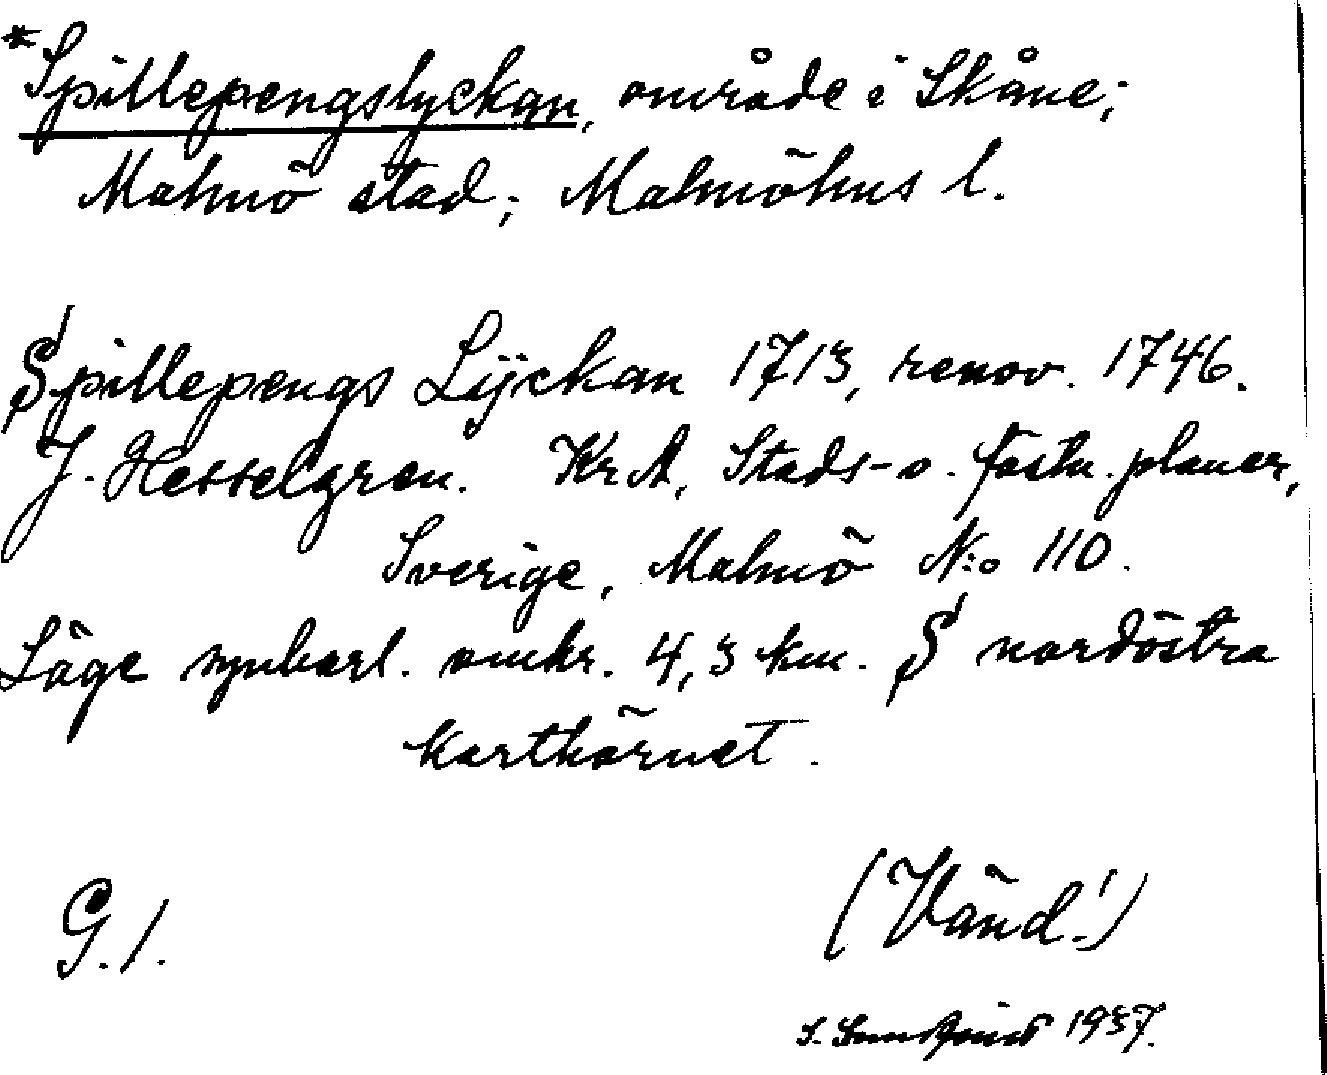 *Spillepengslyckan, område i Skåne;
Malmö stad; Malmöhus l.
Spillepengs Lÿckan 1713, renov. 1746.
J. Hesselgren. KrA, Stads- o. fästn. planer,
Sverige, Malmö N:o 110.
Läge synbarl. omkr. 4,3 km. S nordöstra
karthörnet.
G. 1.
(Vänd!)
S. Sundqvist 1937.